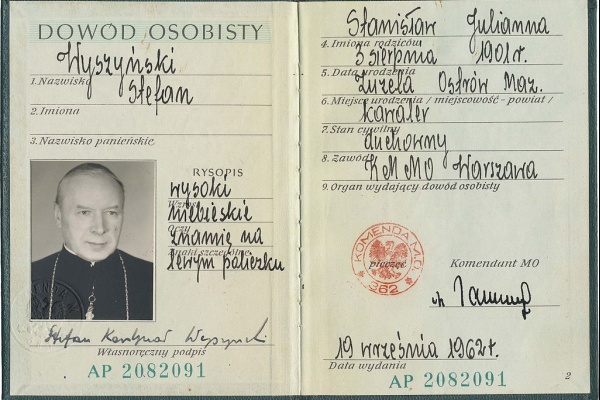 DOWÓD OSOBISTY
Wyszyński
1. Nazwisko
Stefan
2. Imiona
3. Nazwisko panieńskie
RYSOPIS
wysoki
Wzrost
niebieskie
Oczy
znamię na
Znaki szczególne
lewym policzku
Stefan Kardynał Wyszyński
Własnoręczny podpis
AP 2082091
Stanisław Julianna
4. Imiona rodziców
3 sierpnia 1901 r.
5. Data urodzenia
Zuzela Ostrów Maz.
6. Miejsce urodzenia / miejscowość - powiat /
kawaler
7. Stan cywilny
duchowny
8. Zawód
KM MO Warszawa
9. Organ wydający dowód osobisty
KOMENDA M.O.
362
pieczęć
Komendant MO
19 września 1962 r.
Data wydania
AP 2082091
2